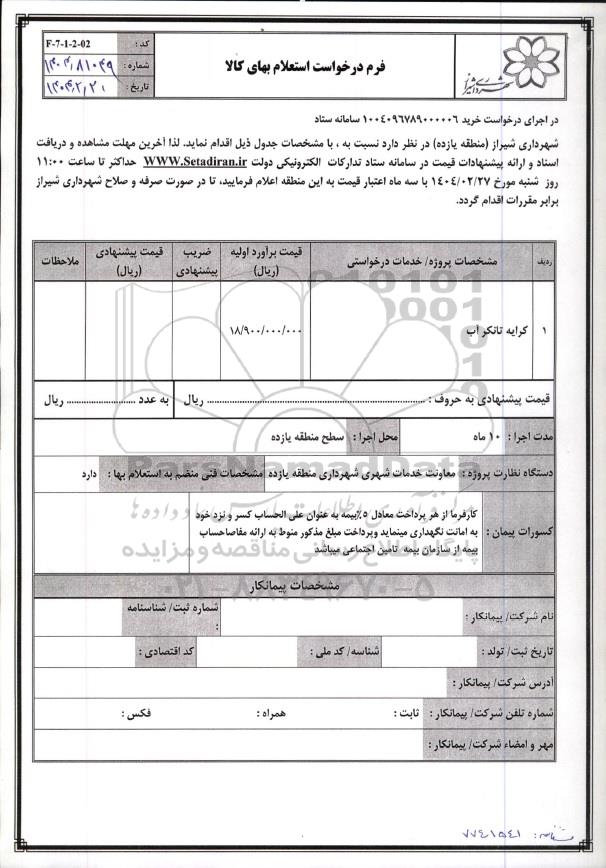 شهرداری شیراز
فرم درخواست استعلام بهای کالا
کد : F-7-1-2-02
شماره :
تاریخ :
در اجرای درخواست خرید ۱۰۰۴۰۹۶۷۸۹۰۰۰۰۰۶ سامانه ستاد
شهرداری شیراز (منطقه یازده) در نظر دارد نسبت به ، با مشخصات جدول ذیل اقدام نماید. لذا آخرین مهلت مشاهده و دریافت
اسناد و ارائه پیشنهادات قیمت در سامانه ستاد تدارکات الکترونیکی دولت WWW.Setadiran.ir حداکثر تا ساعت ۱۱:۰۰
روز شنبه مورخ ۱۴۰۴/۰۲/۲۷ با سه ماه اعتبار قیمت به این منطقه اعلام فرمایید، تا در صورت صرفه و صلاح شهرداری شیراز
برابر مقررات اقدام گردد.
ردیف مشخصات پروژه/ خدمات درخواستی قیمت برآورد اولیه (ریال) ضریب پیشنهادی قیمت پیشنهادی (ریال) ملاحظات
۱ کرایه تانکر آب ۱۸/۹۰۰/۰۰۰/۰۰۰
قیمت پیشنهادی به حروف : ........ ریال به عدد ........ ریال
مدت اجرا : ۱۰ ماه محل اجرا : سطح منطقه یازده
دستگاه نظارت پروژه : معاونت خدمات شهری شهرداری منطقه یازده مشخصات فنی منضم به استعلام بها : دارد
کسورات پیمان : کارفرما از هر پرداخت معادل ۵٪بیمه به عنوان علی الحساب کسر و نزد خود
به امانت نگهداری مینماید وپرداخت مبلغ مذکور منوط به ارائه مفاصاحساب
بیمه از سازمان بیمه تامین اجتماعی میباشد
مشخصات پیمانکار
نام شرکت/ پیمانکار : شماره ثبت/ شناسنامه :
تاریخ ثبت/ تولد : شناسه/ کد ملی : کد اقتصادی :
آدرس شرکت/ پیمانکار :
شماره تلفن شرکت/ پیمانکار : ثابت : همراه : فکس :
مهر و امضاء شرکت/ پیمانکار :